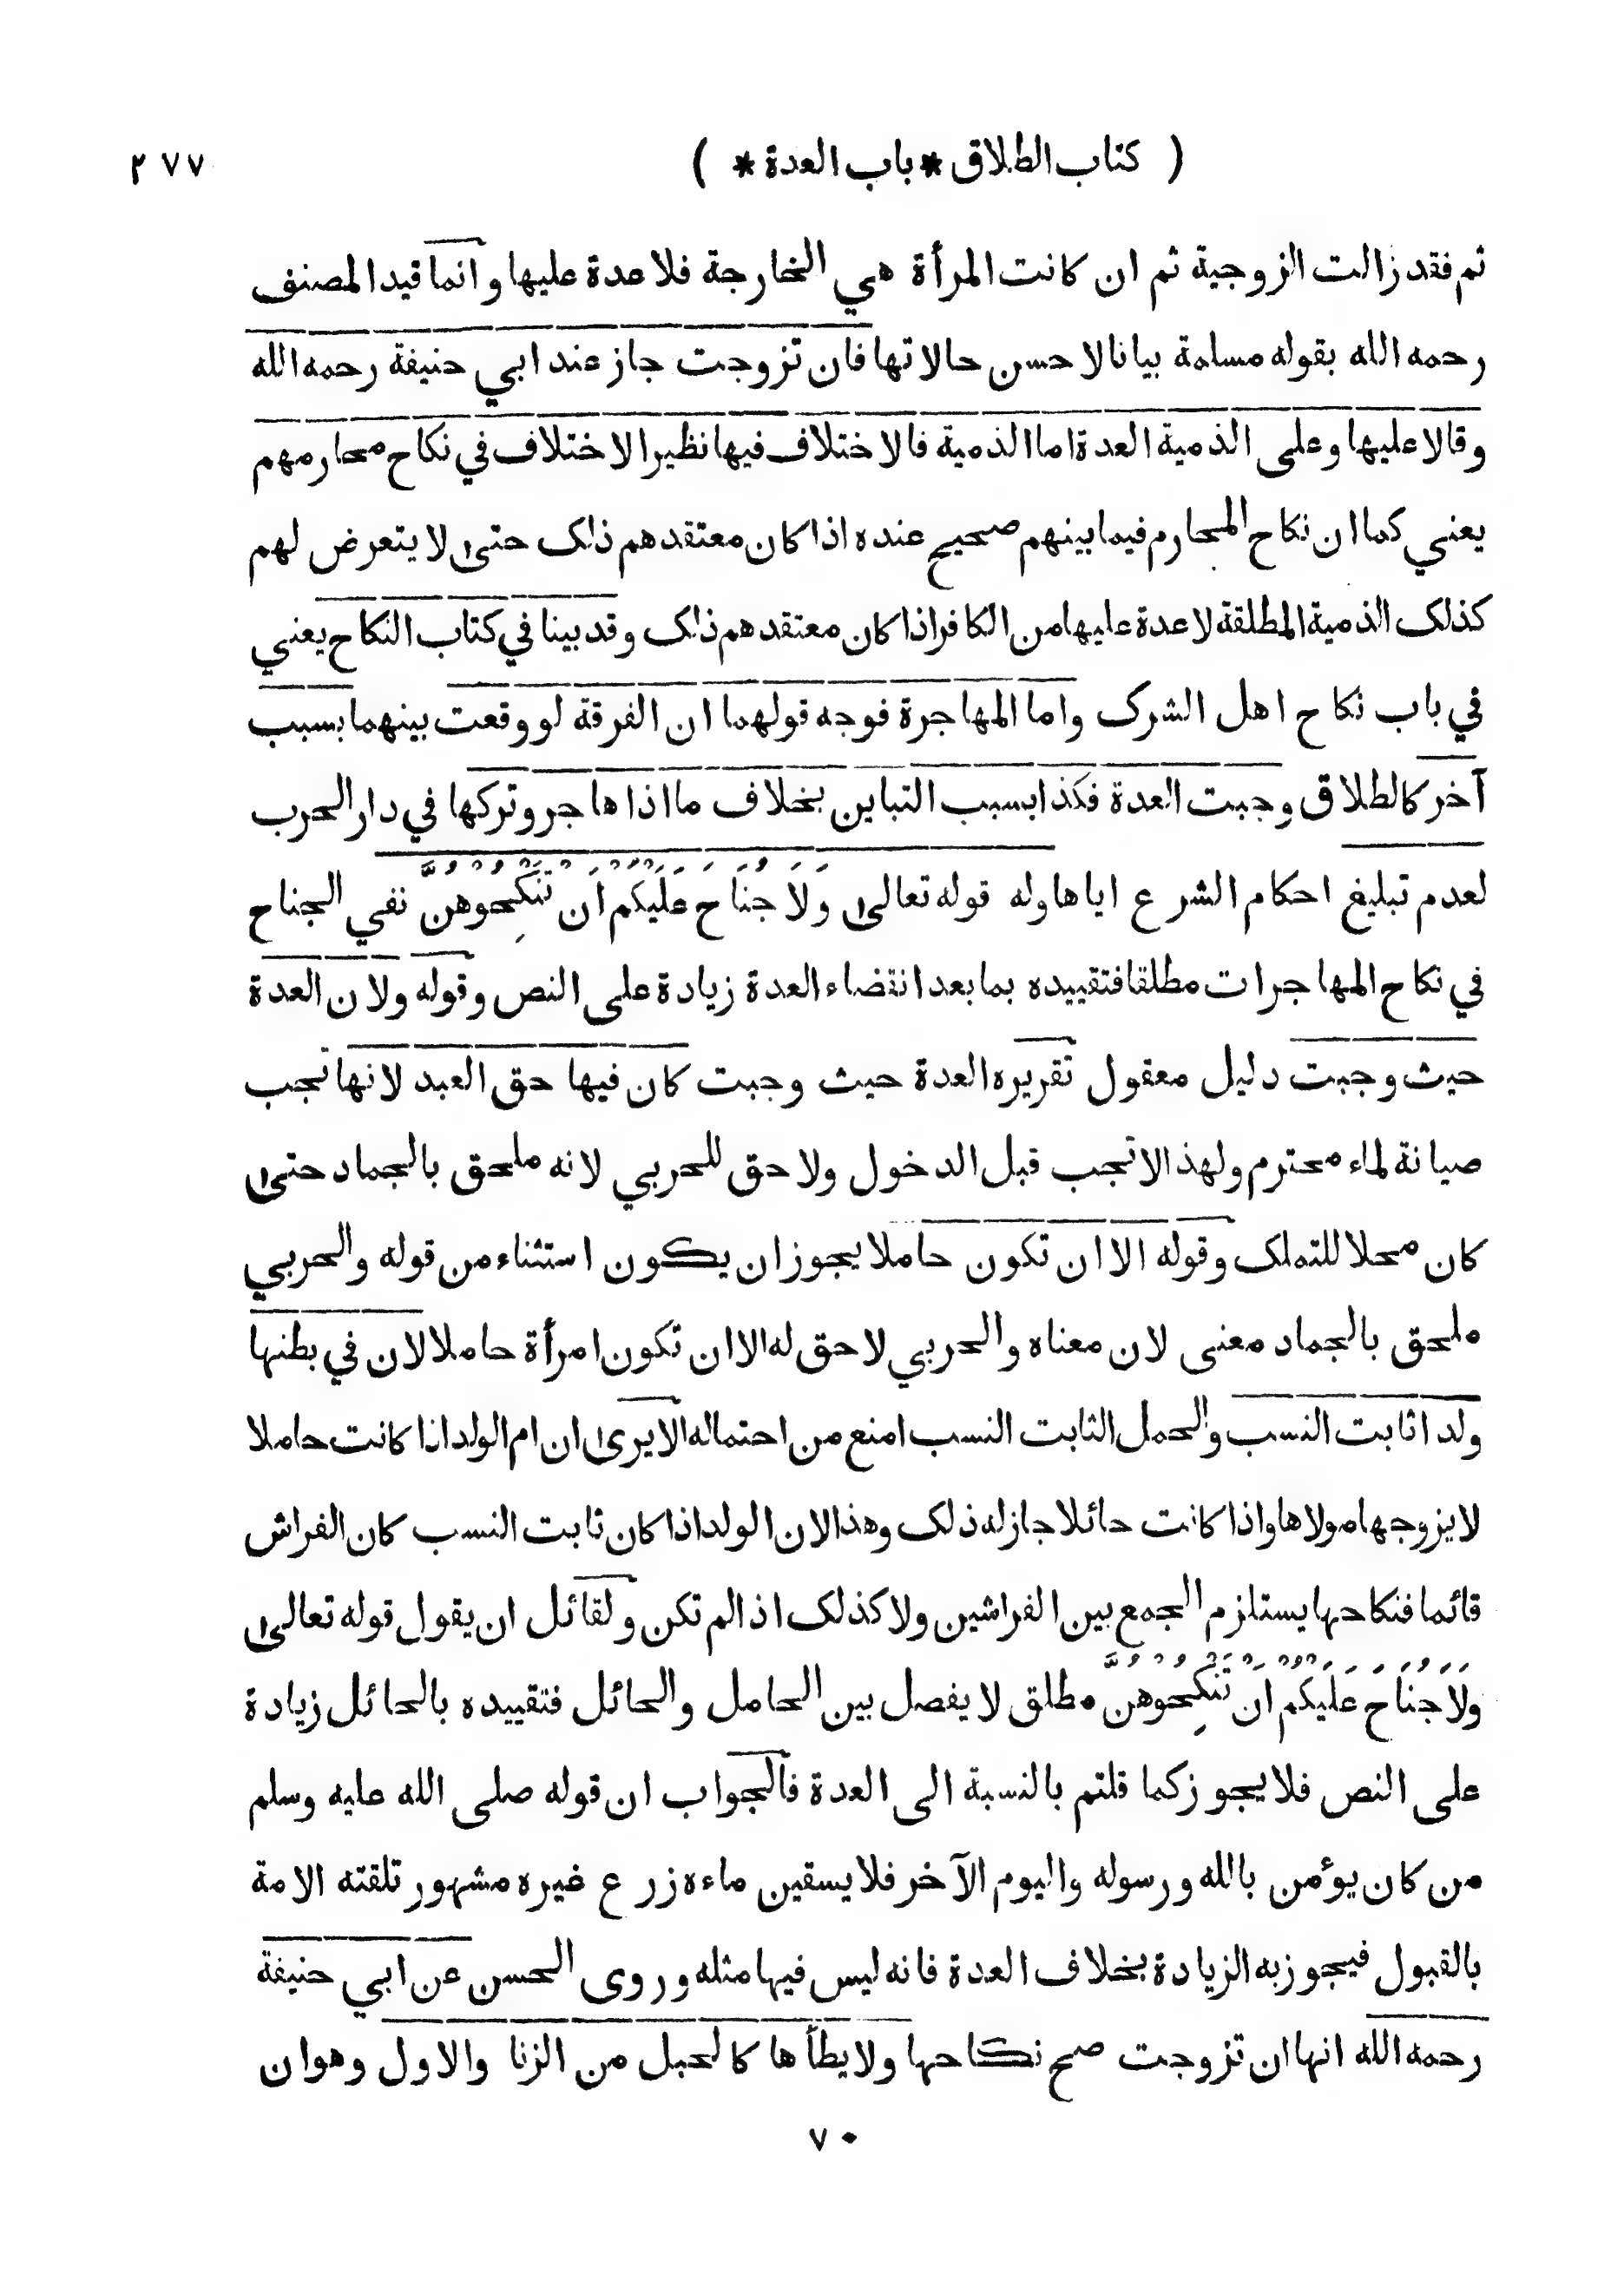 ( كتاب الطلاق * باب العدة * ) ٢٧٧
ثم فقد زالت الزوجية ثم ان كانت المرأة هي الخارجة فلا عدة عليها وانما قيد المصنف
رحمه الله بقوله مسلمة بيانا لاحسن حالاتها فان تزوجت جاز عند ابي حنيفة رحمه الله
وقالا عليها وعلى الذمية العدة اما الذمية فالاختلاف فيها نظير الاختلاف في نكاح محارمهم
يعني كما ان نكاح المحارم فيما بينهم صحيح عنده اذا كان معتقدهم ذلك حتى لا يتعرض لهم
كذلك الذمية المطلقة لا عدة عليها من الكافر اذا كان معتقدهم ذلك وقد بينا في كتاب النكاح يعني
في باب نكاح اهل الشرك واما المهاجرة فوجه قولهما ان الفرقة لو وقعت بينهما بسبب
آخر كالطلاق وجبت العدة فكذا بسبب التباين بخلاف ما اذا هاجر وتركها في دار الحرب
لعدم تبليغ احكام الشرع اياها وله قوله تعالى وَلَا جُنَاحَ عَلَيْكُمْ اَنْ تَنْكِحُوْهُنَّ نفي الجناح
في نكاح المهاجرات مطلقا فتقييده بما بعد انقضاء العدة زيادة على النص وقوله ولان العدة
حيث وجبت دليل معقول تقريره العدة حيث وجبت كان فيها حق العبد لانها تجب
صيانة لماء محترم ولهذا لا تجب قبل الدخول ولا حق للحربي لانه ملحق بالجماد حتى
كان محلا للتملك وقوله الا ان تكون حاملا يجوز ان يكون استثناء من قوله والحربي
ملحق بالجماد معنى لان معناه والحربي لا حق له الا ان تكون امرأة حاملا لان في بطنها
ولدا ثابت النسب والحمل الثابت النسب امنع من احتماله الا يرى ان ام الولد اذا كانت حاملا
لا يزوجها مولاها واذا كانت حائلا جاز له ذلك وهذا لان الولد اذا كان ثابت النسب كان الفراش
قائما فنكاحها يستلزم الجمع بين الفراشين ولا كذلك اذا لم تكن ولقائل ان يقول قوله تعالى
وَلَا جُنَاحَ عَلَيْكُمْ اَنْ تَنْكِحُوْهُنَّ مطلق لا يفصل بين الحامل والحائل فتقييده بالحائل زيادة
على النص فلا يجوز كما قلتم بالنسبة الى العدة فالجواب ان قوله صلى الله عليه وسلم
من كان يؤمن بالله ورسوله واليوم الآخر فلا يسقين ماءه زرع غيره مشهور تلقته الامة
بالقبول فيجوز به الزيادة بخلاف العدة فانه ليس فيها مثله وروى الحسن عن ابي حنيفة
رحمه الله انها ان تزوجت صح نكاحها ولا يطأها كالحبل من الزنا والاول وهو ان
٧٠